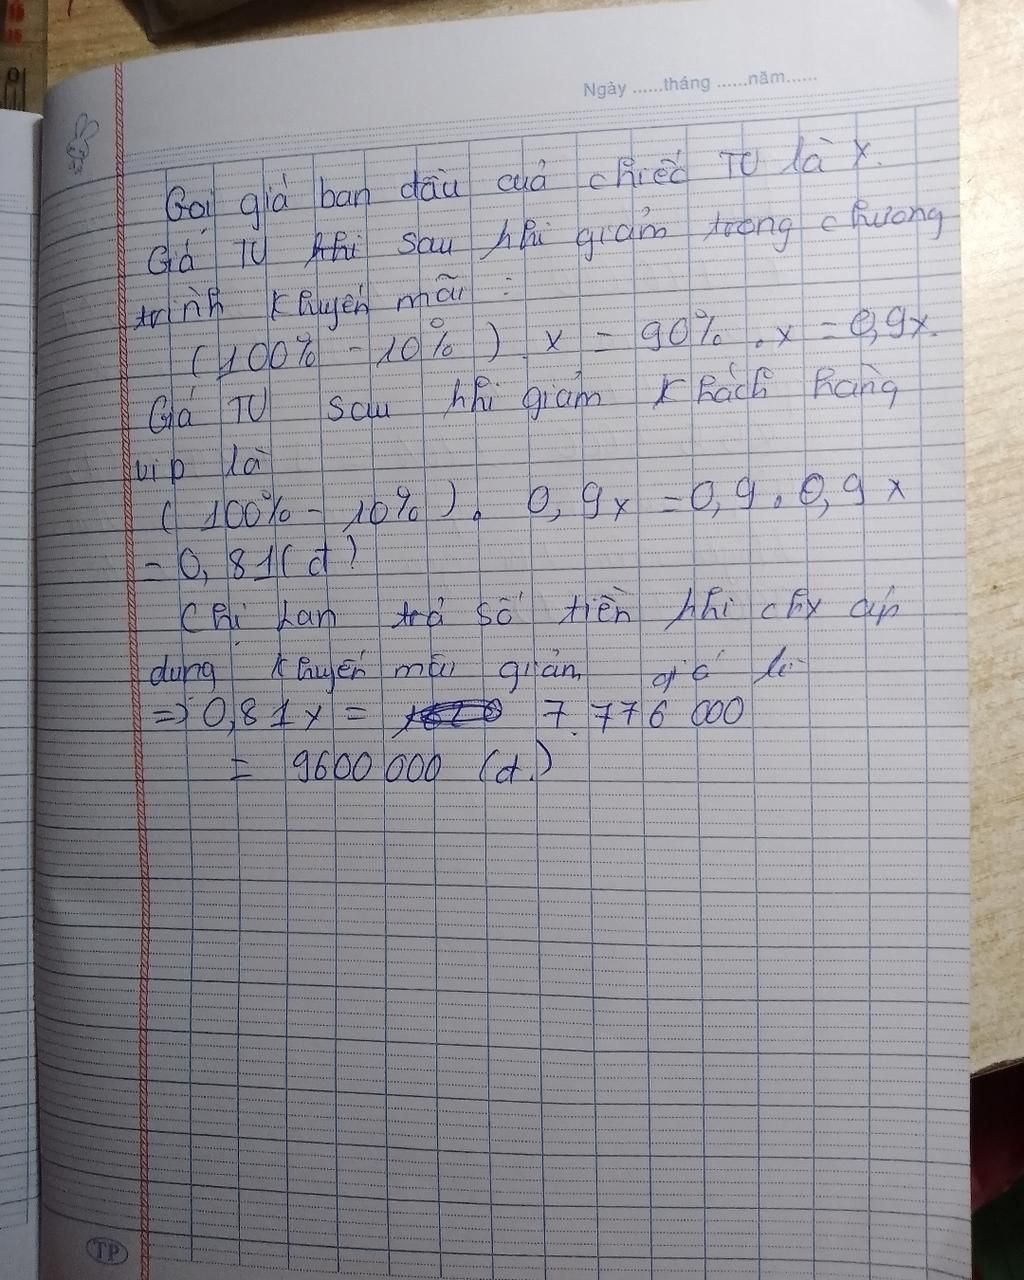 Ngày ......tháng ......năm......
Gọi giá ban đầu cuả chiếc TV là x.
Giá TV khi sau khi giảm trong chương
trình khuyến mãi :
(100% - 10%) x = 90% . x = 0,9x.
Giá TV sau khi giảm khách hàng
vip là
(100% - 10%). 0,9x = 0,9.0,9x
= 0,81(đ)
Chi Lan trả số tiền khi chx áp
dụng khuyến mãi giảm giá là
=> 0,81x = 7.776 000
= 9600 000 (đ.)
TP